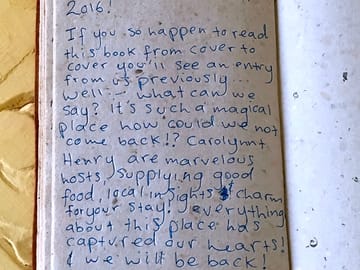 2016!
If you so happen to read
this book from cover to
cover you'll see an entry
from us previously...
well - what can we
say? It's such a magical
place how could we not
come back!? Carolynn +
Henry are marvelous
hosts, supplying good
food, local insights & charm
for your stay! Everything
about this place has
captured our hearts!
& we will be back!